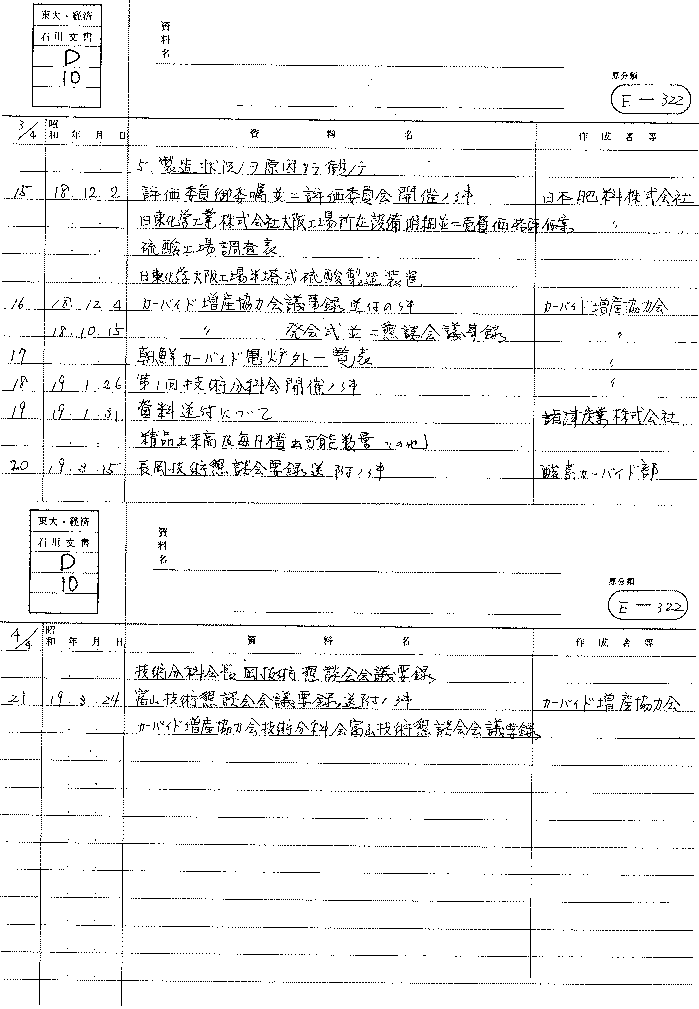 東大・経済
石川文書
D
10
資料名
原分類
E-322
3/4 昭和 年 月 日 資料名 作成者等
5. 製造状況ノヲ原因カラ観ノテ
15 18.12.2 評価委員御委嘱並ニ評価委員会開催ノ件 日本肥料株式会社
日東化学工業株式会社大阪工場所在設備明細並ニ売買価格評価案 〃
硫酸工場調査表
日東化学大阪工場半塔式硫酸製造装置
16 18.12.4 カーバイド増産協力会議事録送付の件 カーバイド増産協力会
18.10.15 〃 発会式並ニ懇談会議事録 〃
17 朝鮮カーバイド電炉外一覧表 〃
18 19.1.26 第1回技術分科会開催ノ件 〃
19 19.1.31 資料送付について 諸津産業株式会社
精品出来高及毎月積出可能数量(その他)
20 19.3.15 長岡技術懇談会要録送附ノ件 酸素カーバイド部
東大・経済
石川文書
D
10
資料名
原分類
E-322
4/4 昭和 年 月 日 資料名 作成者等
技術分科会長岡技術懇談会会議要録
21 19.3.24 富山技術懇談会会議要録送附ノ件 カーバイド増産協力会
カーバイド増産協力会技術分科会富山技術懇談会会議要録